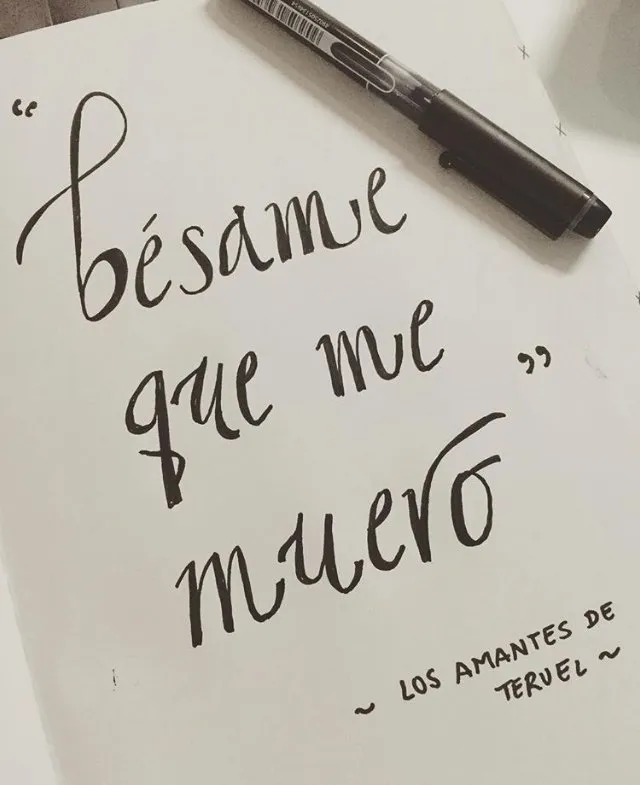 “bésame
que me ”
muero
~ LOS AMANTES DE
TERUEL ~